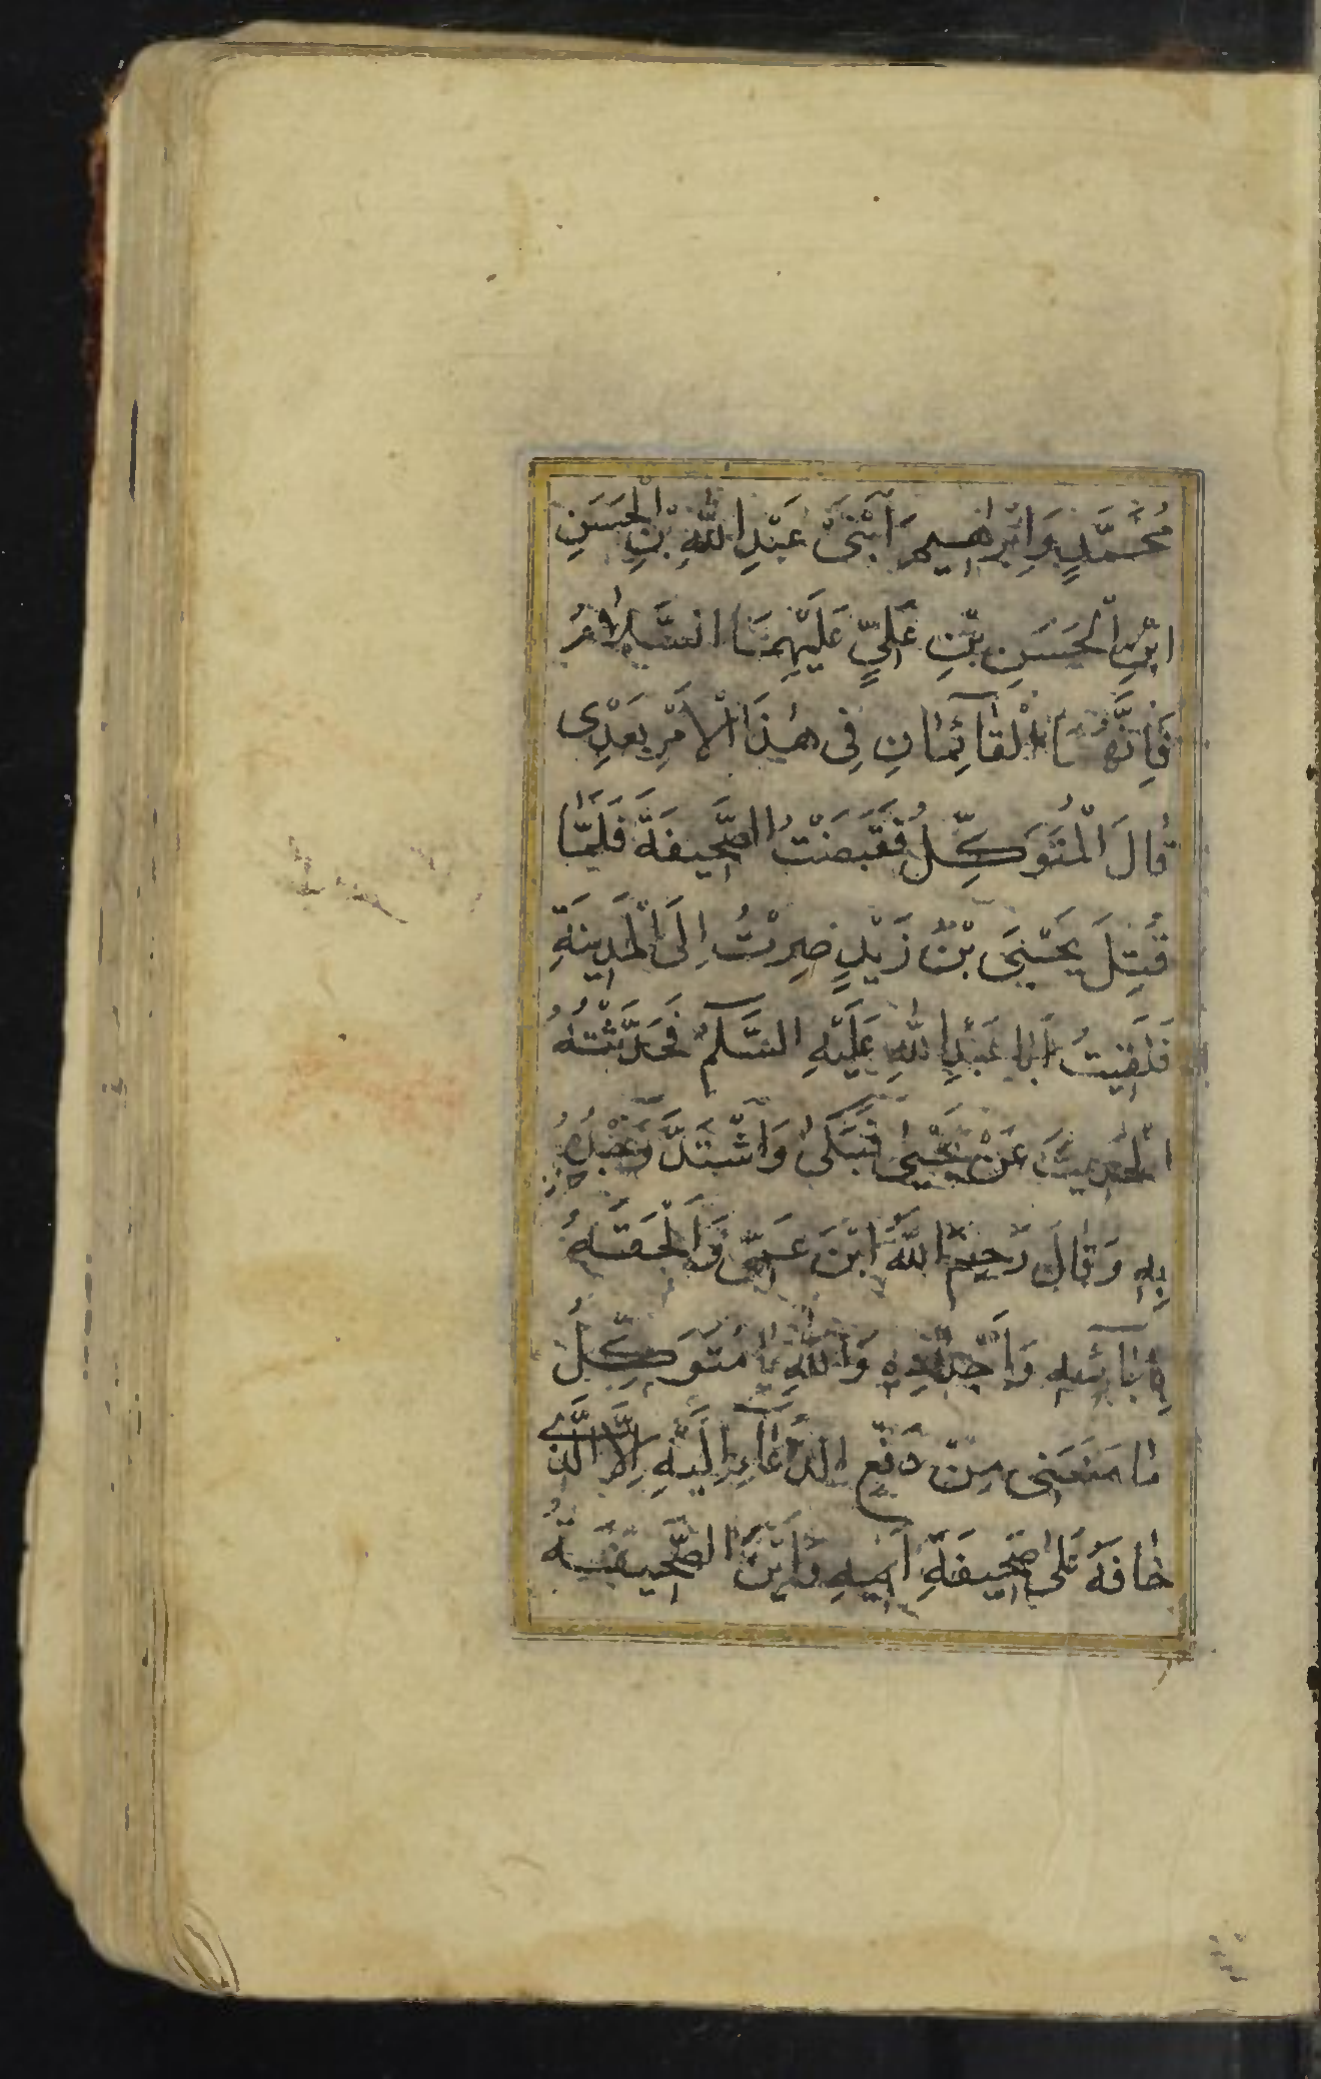 مُحَمَّدٍ وَاِبْرٰهِيمَ ابْنَىْ عَبْدِ اللّٰهِ بْنِ الْحَسَنِ
ابْنِ الْحَسَنِ بْنِ عَلِيٍّ عَلَيْهِمَا السَّلَامُ
فَاِنَّهُمَا الْقٰآئِمٰانِ فِى هٰذَا الْاَمْرِ بَعْدِى
قٰالَ الْمُتَوَكِّلُ فَقَبَضْتُ الصَّحِيفَةَ فَلَمّٰا
قُتِلَ يَحْيَى بْنُ زَيْدٍ صِرْتُ اِلَى الْمَدِينَةِ
فَلَقِيتُ اَبٰا عَبْدِ اللّٰهِ عَلَيْهِ السَّلَامُ فَحَدَّثْتُهُ
الْحَدِيثَ عَنْ يَحْيىٰ فَبَكىٰ وَاشْتَدَّ وَجْدُهُ
بِهِ وَقٰالَ رَحِمَ اللّٰهُ ابْنَ عَمِّى وَاَلْحَقَهُ
بِاٰبٰآئِهِ وَاَجْدٰادِهِ وَاللّٰهِ يٰا مُتَوَكِّلُ
مٰا مَنَعَنِى مِنْ دَفْعِ الدُّعٰآءِ اِلَيْهِ اِلَّا الَّذِى
خٰافَهُ عَلىٰ صَحِيفَةِ اَبِيهِ وَاَيْنَ الصَّحِيفَةُ